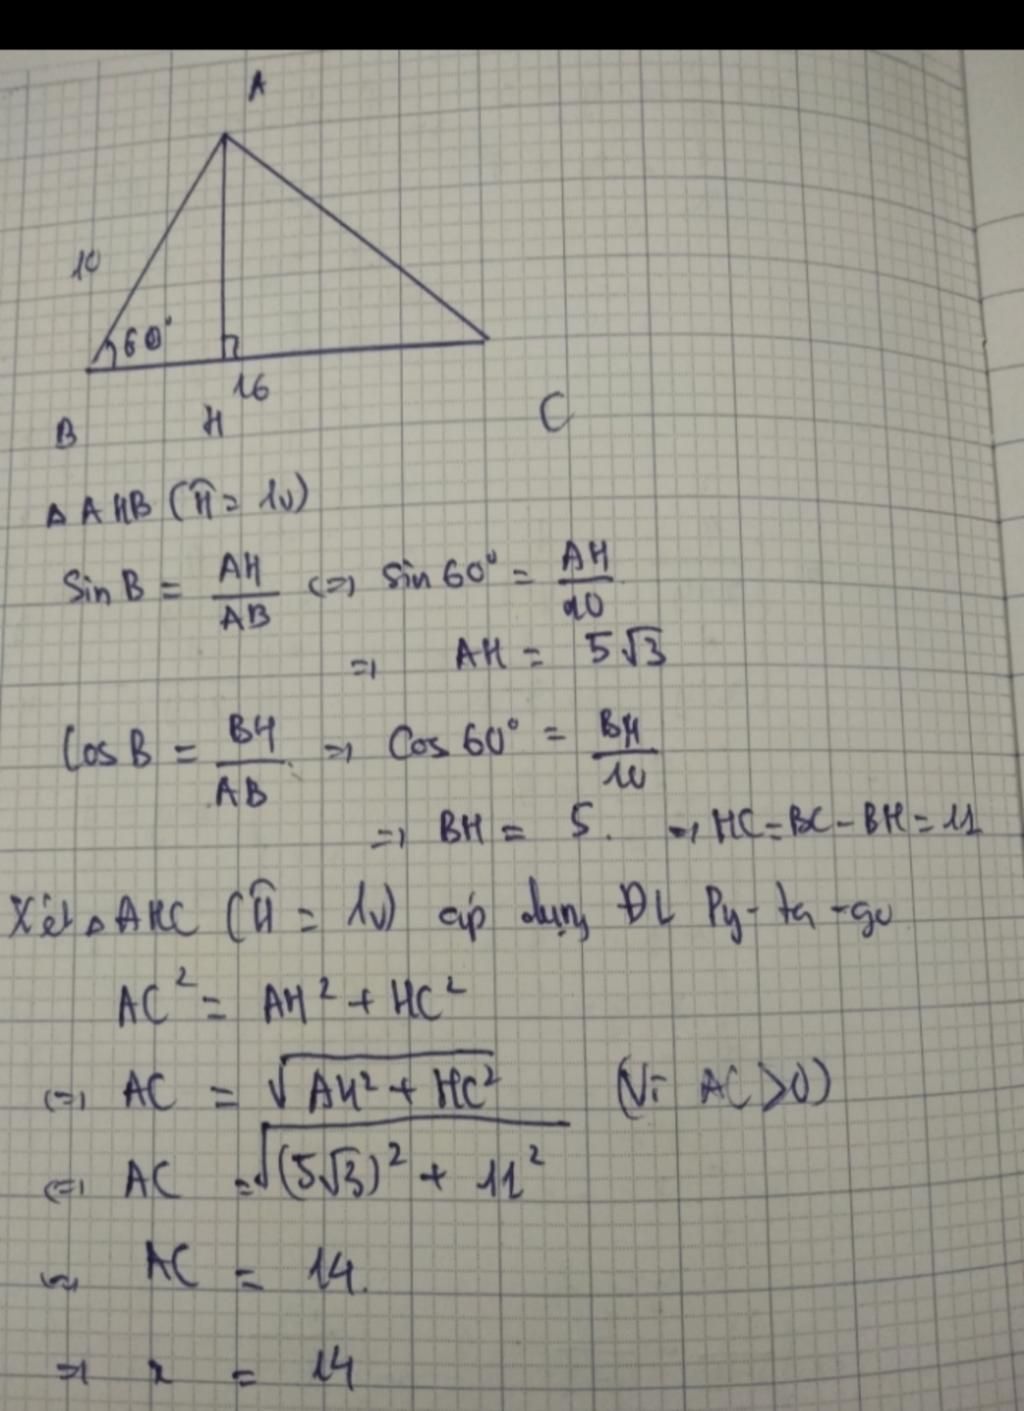 A
10
60°
16
B H C
Δ AHB (Ĥ = 1v)
Sin B = AH/AB <=> Sin 60° = AH/10
=> AH = 5√3
Cos B = BH/AB => Cos 60° = BH/10
=> BH = 5. => HC = BC - BH = 11
Xét Δ AHC (Ĥ = 1v) áp dụng ĐL Py-ta-go
AC² = AH² + HC²
<=> AC = √(AH² + HC²) (Vì AC > 0)
<=> AC = √((5√3)² + 11²)
=> AC = 14.
=> x = 14